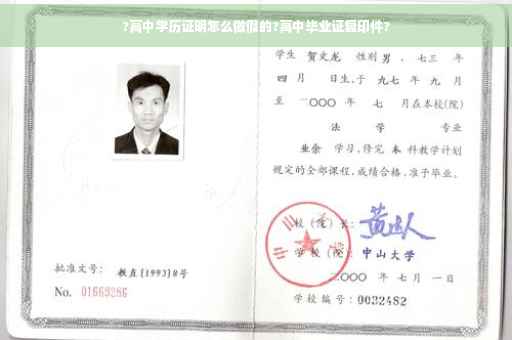 ?高中学历证明怎么做假的?高中毕业证复印件?
学生 贺文龙 性别 男 、七三 年
四 月 日生,于 九七 年 九 月
至 二〇〇〇 年 七 月在本校(院)
法 学 专业
业余 学习,修完 本 科教学计划
规定的全部课程,成绩合格,准予毕业。
校 (院) 长:
学 校 (院): 中山大学
二〇〇〇 年 七 月 一 日
学校编号: 0032482
批准文号: 教直[1993]8号
No. 01669286